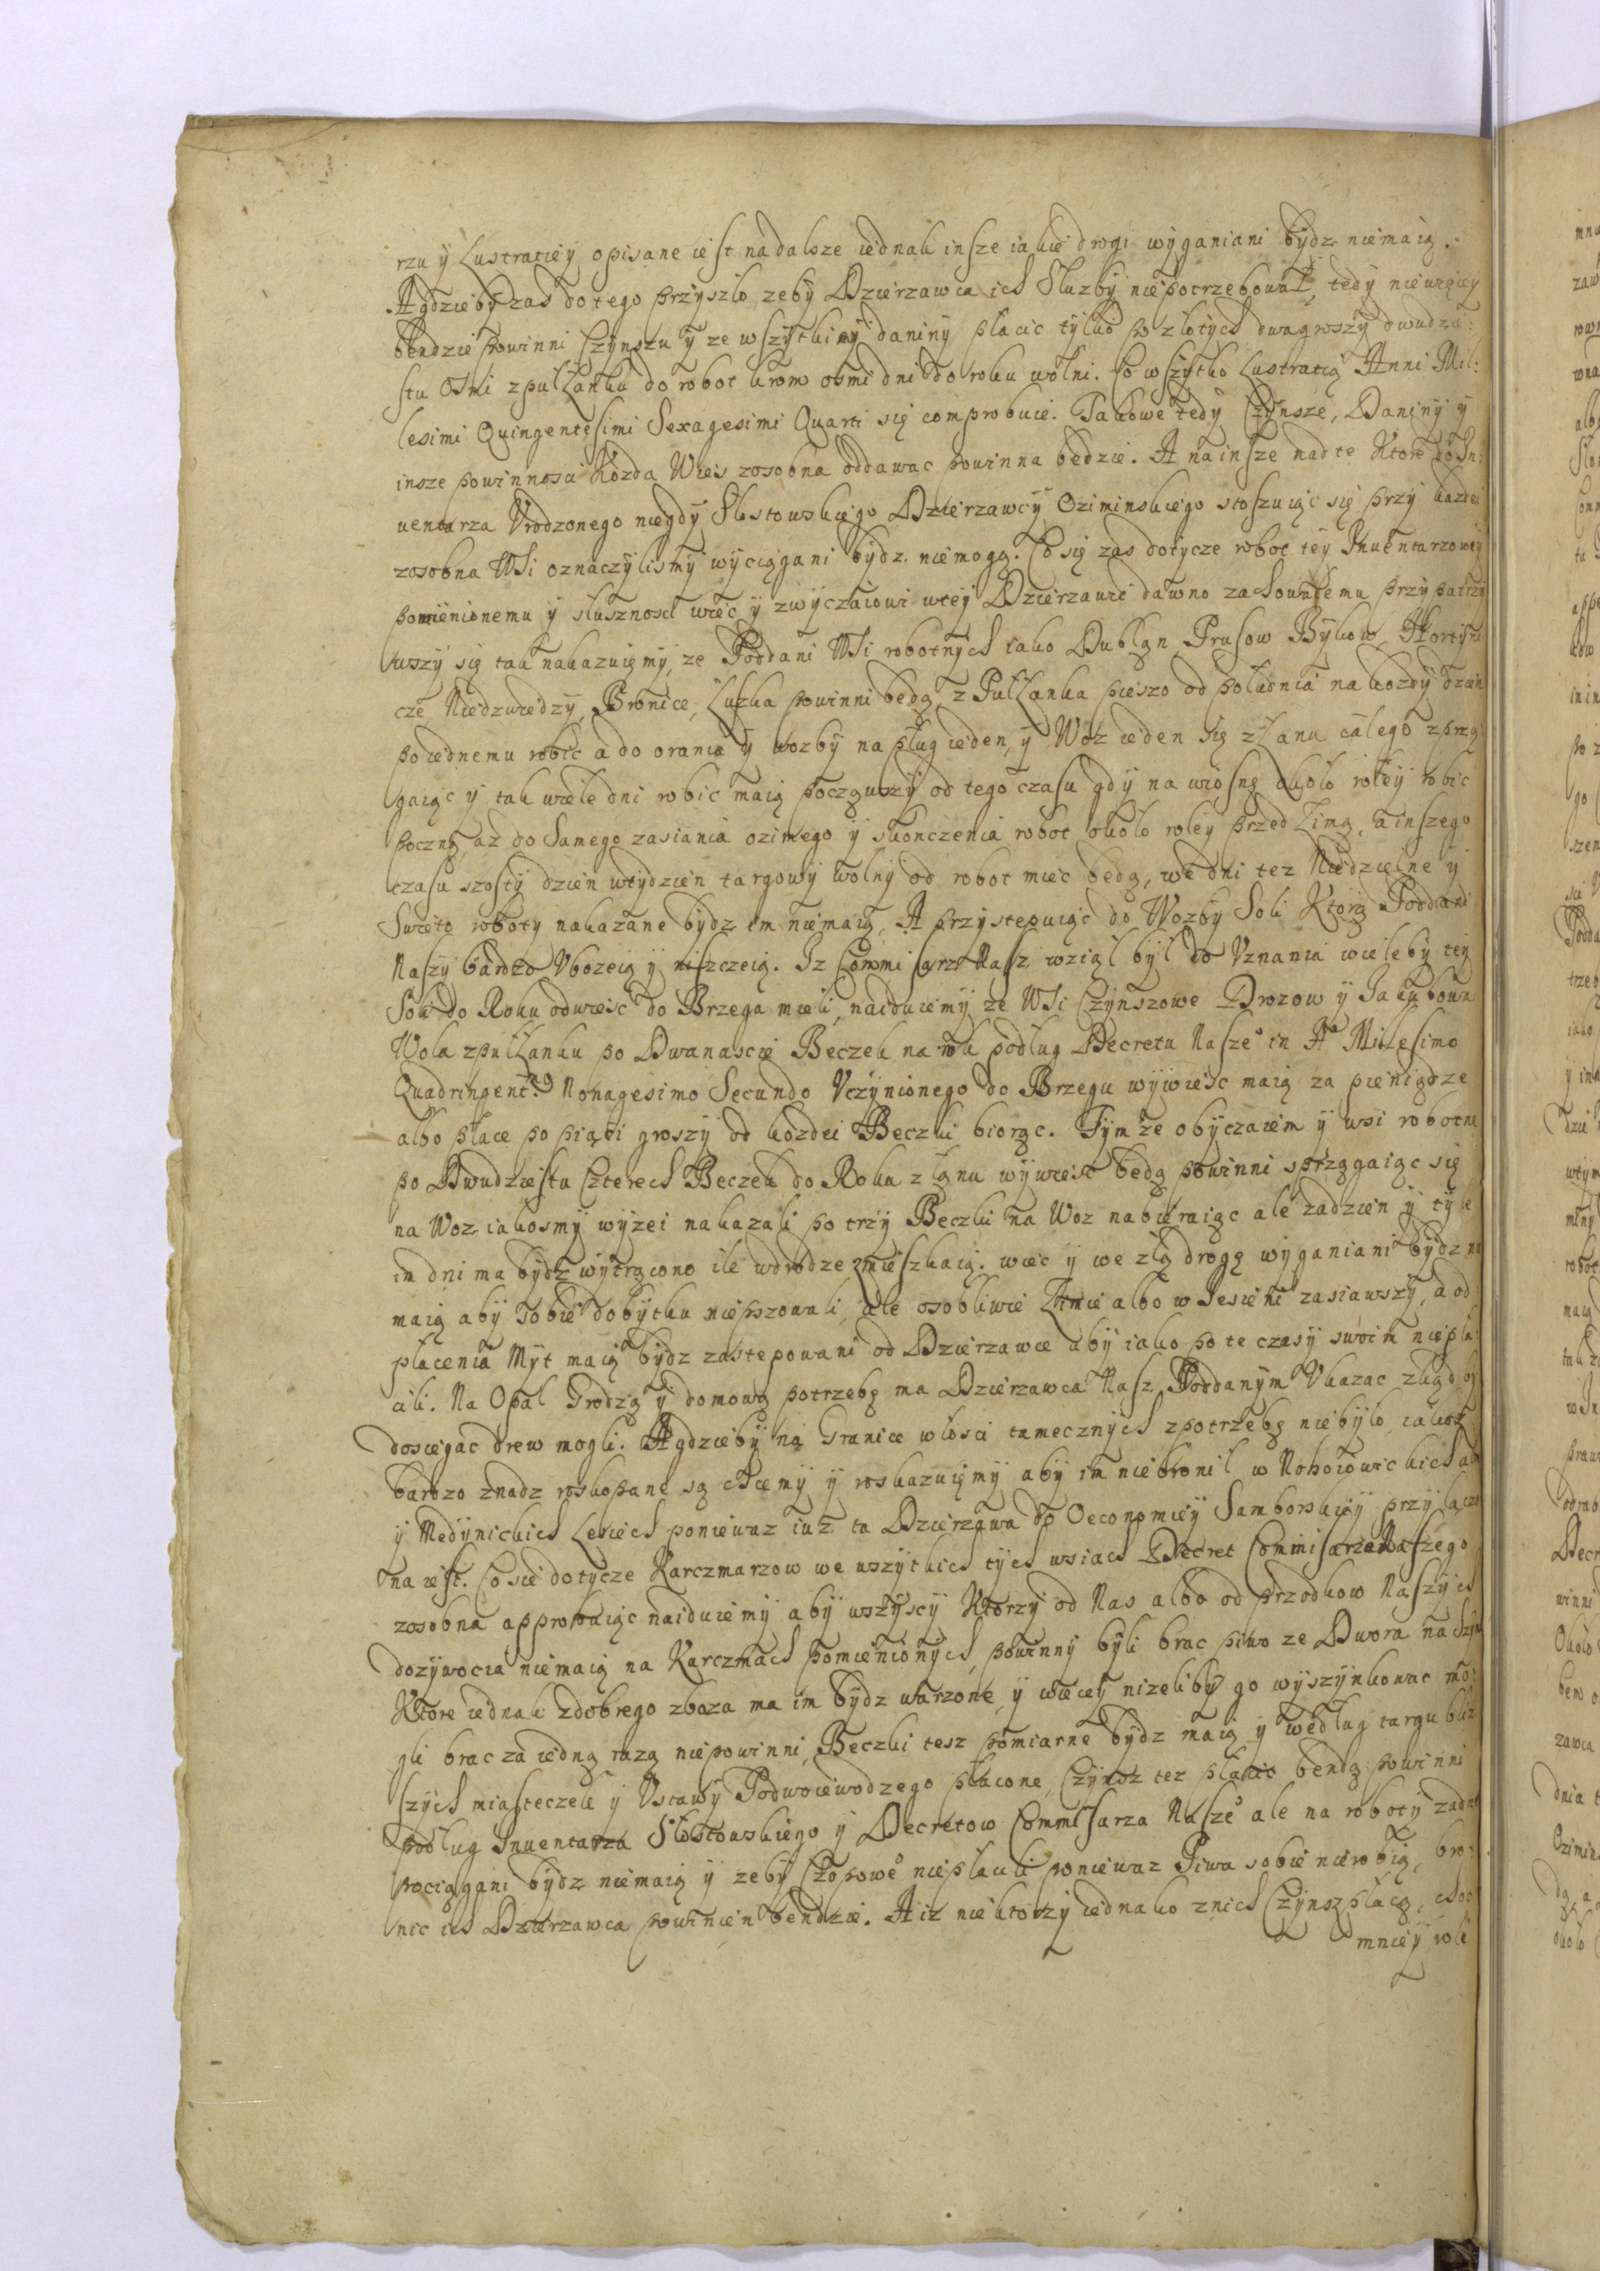 rzu ÿ Lustratieÿ opisane iest nadalsze iednak insze iakie drogi wÿganiani bÿdz niemaią.
A gdziebÿ zas dotego przÿszlo zebÿ Dzierzawca ich Sluzbÿ niepotrzebował, tedÿ niewięceÿ
bendzie powinni Czÿnszu ÿ ze wszÿtkimÿ daninÿ placic tÿlko po zlotÿch dwa groszÿ dwudzie:
stu Osmi zpułŁanku do robot krom osmi dni do roku wolni. Co wszÿtko Lustratią Anni Mil:
lesimi Quingentesimi Sexagesimi Quarti się comprobuie. Takowe tedÿ Czÿnsze, Daninÿ ÿ
insze powinnosci Kozda Wies zosobna oddawac powinna bedzie. A na insze nad te Ktore do In:
uentarza Vrodzonego niegdÿ Slostowskiego Dzierzawcÿ Oziminskiego stoszuiąc się przÿ kazdei
zosobna WSi oznaczÿlismÿ wÿciągani bÿdz niemogą. Co się zas dotÿcze robot teÿ Inuentarzoweÿ
pomienionemu ÿ slusznosci wiec ÿ zwÿczaiowi wteÿ Dzierzawie dawno zachowałemu przÿpatrzÿ
wszÿ się tak nakazuięmÿ, ze Poddani WSi robotnÿch iako Dublan Prusow Bÿkow, Hortÿni
cze Niedzwiedzÿ, Bronice, Luzka powinni bedą z PułŁanka pieszo od poludnia na kozdÿ dzien
poiednemu robic a do orania ÿ wozbÿ na plug ieden, ÿ Woz ieden się złanu całego zprzą
gaiąc ÿ tak wiele dni robic maią począwszÿ od tego czasu gdÿ na wiosnę około roleÿ robic
poczną, az do Samego zasiania ozimego ÿ skonczenia robot około roleÿ przed Zimą, a inszego
czasu szostÿ dzien wtÿdzien targowÿ wolnÿ od robot miec bedą, we dni tez Niedzielne ÿ
Swięto robotÿ nakazane bÿdz im niemaią, A przÿstepuiąc do Wozbÿ Soli Którą Poddani
Naszÿ bardzo Vbozeią ÿ niszczeią. Iz Commisarz Nasz wziął bÿl do Vznania wielebÿ teÿ
Soli do Roku odwiesc do Brzega mieli, naiduiemÿ ze WSi Czÿnszowe Drozow ÿ Iakubowa
Wola zpułŁanku po Dwanascie Beczek na rok podlug Decretu Nasze° in A° Millesimo
Quadringent? Nonagesimo Secundo Vczÿnionego do Brzegu wÿwiesc maią za pieniądze
albo place po piąci groszÿ od kozdei Beczki biorąc. Tÿm ze obÿczaiem ÿ wsi robotne
po Dwudziestu Czterech Beczek do Roku z łanu wÿwiesc bedą powinni sprzągaiąc się
na Woz iakosmÿ wÿzei nakazali po trzÿ Beczki na Woz nabieraiąc ale zadzien ÿ tÿle
im dni ma bÿdz wÿtrącono ile wdrodze zmieszkaią. wiec ÿ we złą drogę wÿganiani bÿdz nie
maią abÿ sobie dobÿtku niepsowali, ale osobliwie Zimie albo w Iesieni zasiawszÿ, a od
placenia Mÿt maią bÿdz zastepowani od Dzierzawce abÿ iako po te czasÿ swoim niepla:
cili. Na Opał Grodzą ÿ domową potrzebę ma Dzierzawca Nasz Poddanÿm Vkazac zkądbÿ
dosiegac drew mogli. A gdziebÿ na Granice włosci tamecznÿch zpotrzebę niebÿlo, iakoz
bardzo znadz roskopane są chcemÿ ÿ roskazuiemÿ abÿ im niebronil w Nohoiowickich ale
ÿ Medÿnickich Lesiech poniewaz iuz ta Dzierzawa do Oeconomieÿ Samborskieÿ przÿłączo
na iest. Co sie dotÿcze Karczmarzow we wszÿtkich tÿch wsiach Decret Commisarza Naszego
zosobna approbuiąc naiduiemÿ abÿ wszÿscÿ Ktorzÿ od Nas albo od przodkow Naszÿch
dozÿwocia niemaią na Karczmach pomienionÿch, powinnÿ bÿli brac piwo ze Dwora na Szÿnk
Ktore iednak zdobrego zboza ma im bÿdz warzone, ÿ wieceÿ nizelibÿ go wÿszÿnkowac mo:
gli brac za iedną razą niepowinni, Beczki tesz pomiarne bÿdz maią ÿ według targu bliz
szÿch miasteczek ÿ Vstawÿ Podwoiewodzego placone, Czÿnsz tez placic bendą powinni
podlug Inuentarza Slostowskiego ÿ Decretow Commisarza Nasze° ale na robotÿ zadne
pociągani bÿdz niemaią ÿ zebÿ Czopowe nieplacili poniewaz Piwa sobie nierobią, bro:
nic ich Dzierzawca powinien bendzie. A iz niektorzÿ iednako znich Czÿnsz placą, choc
mnieÿ roli